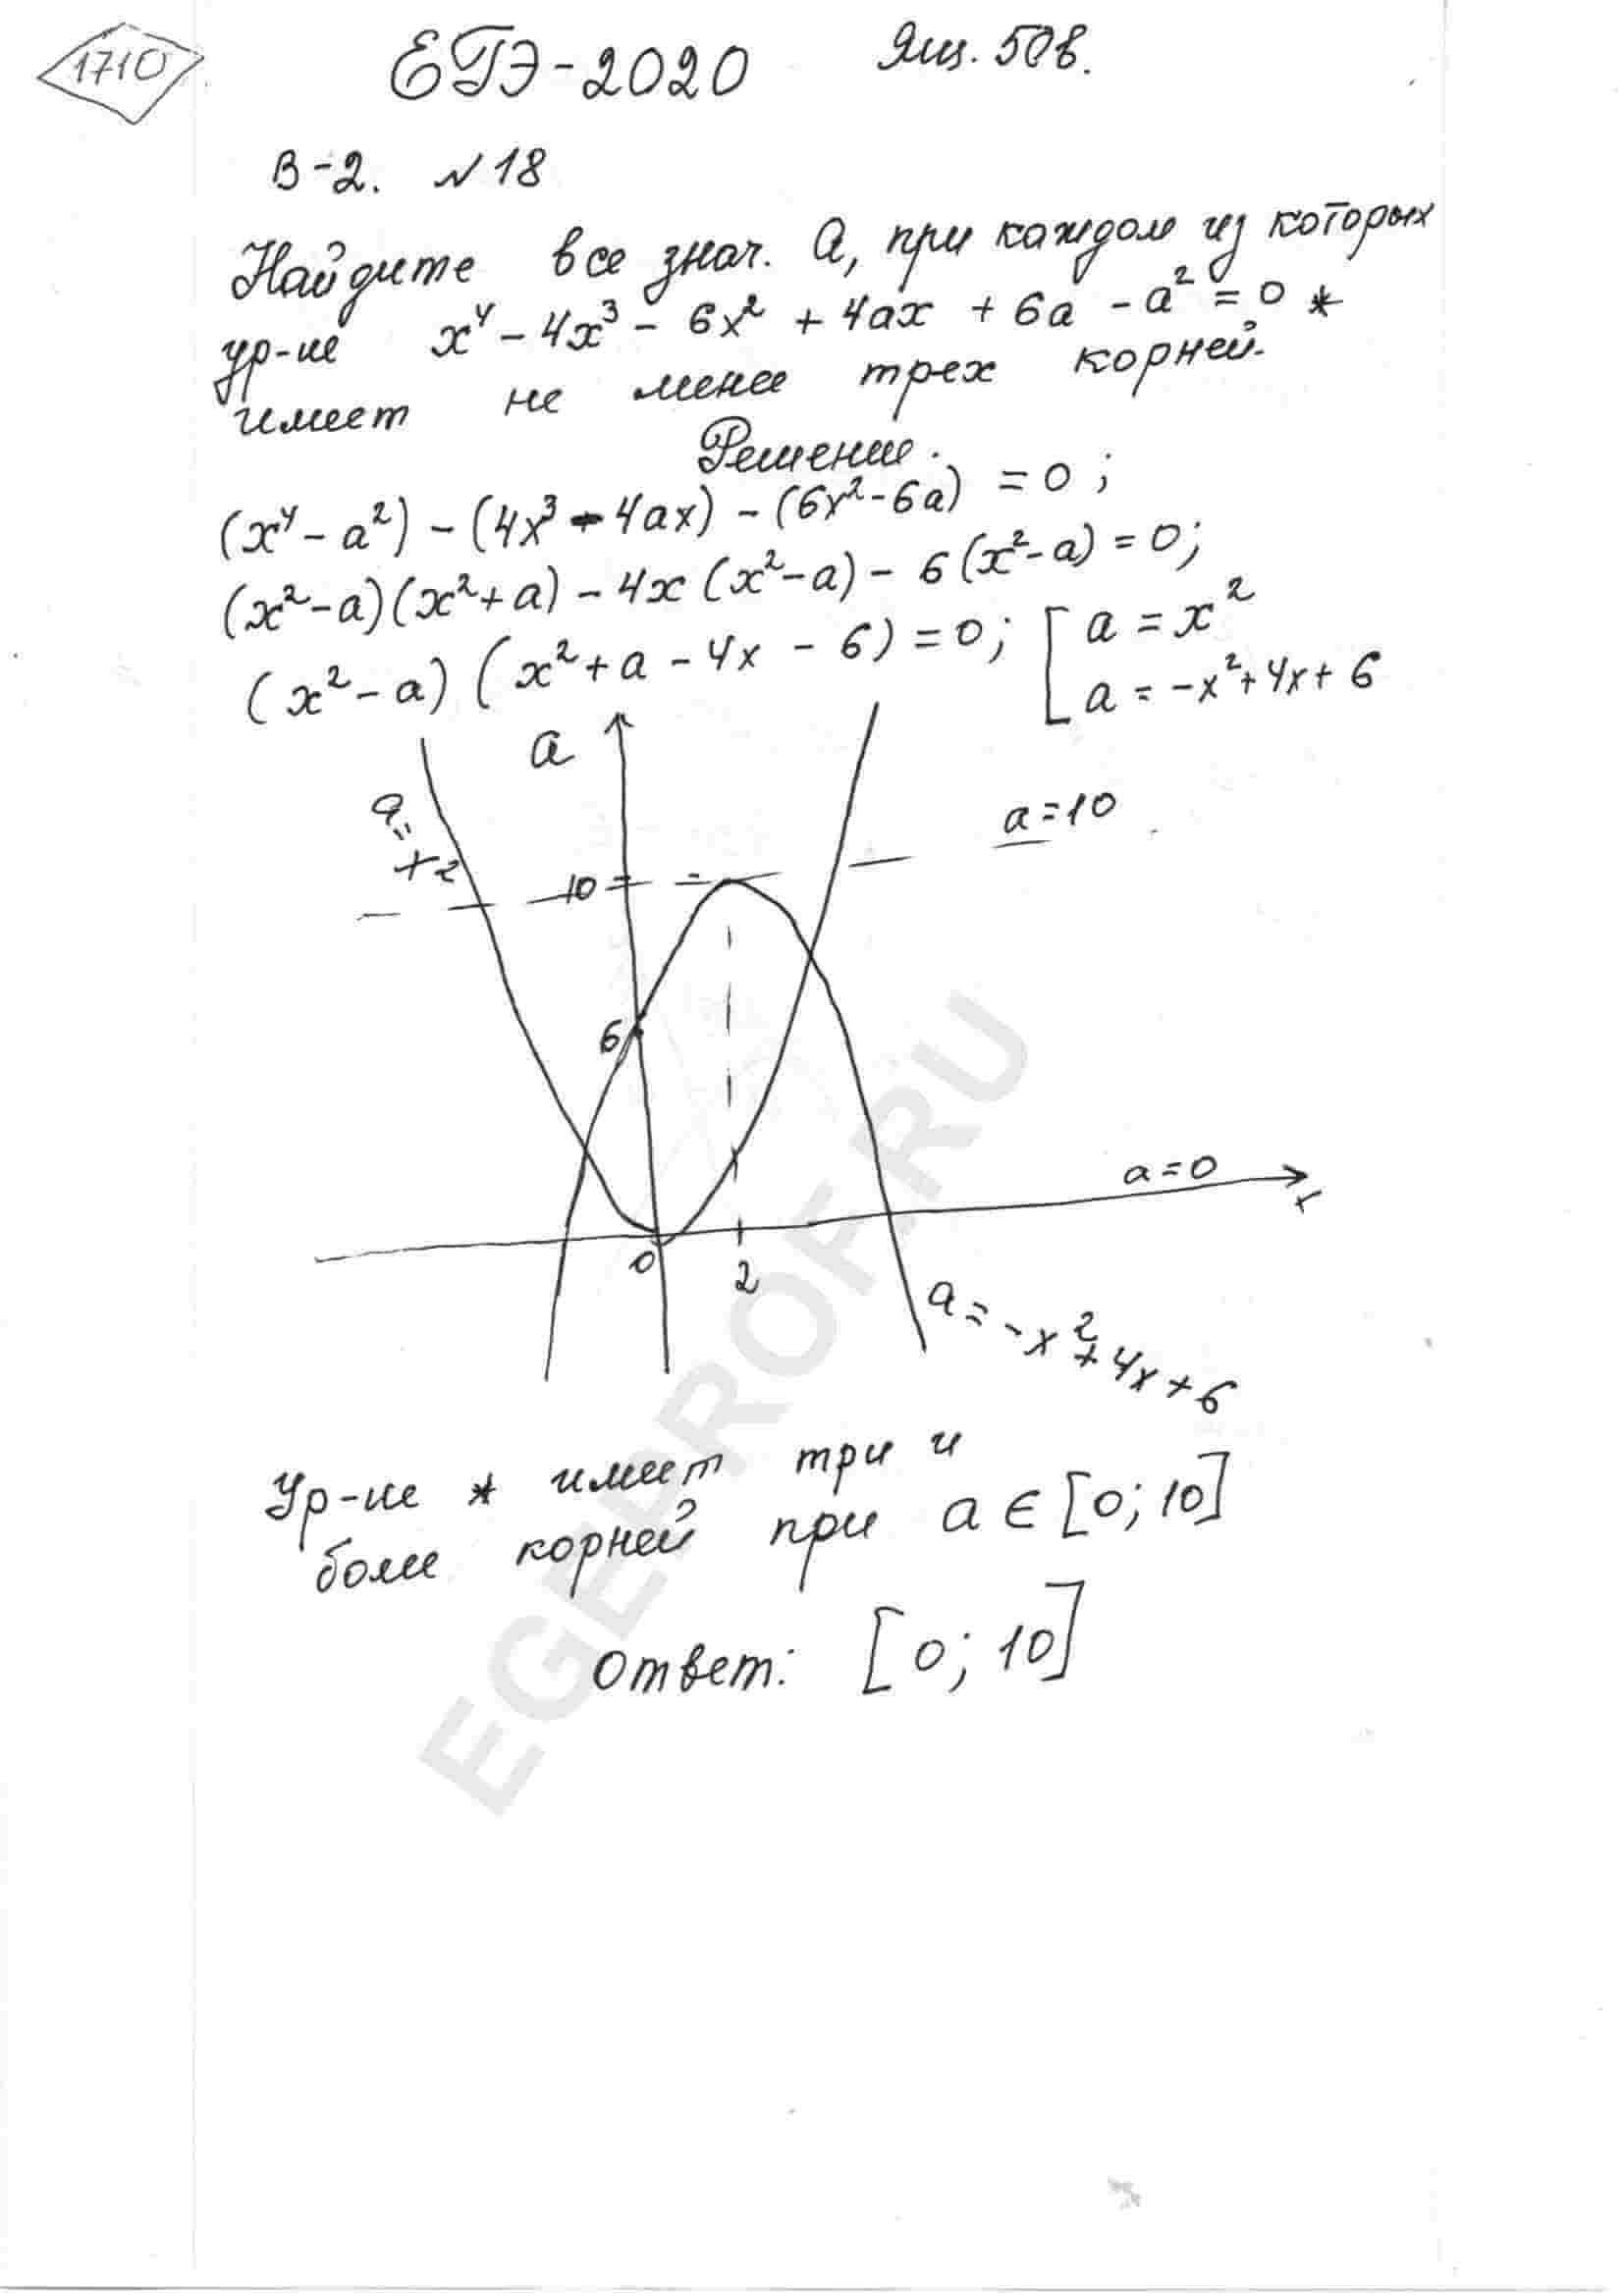 1710
ЕГЭ-2020 Ящ. 50в.
В-2. №18
Найдите все знач. а, при каждом из которых
ур-ие x⁴ - 4x³ - 6x² + 4ax + 6a - a² = 0 *
имеет не менее трех корней.
Решение.
(x⁴ - a²) - (4x³ - 4ax) - (6x² - 6a) = 0;
(x² - a)(x² + a) - 4x(x² - a) - 6(x² - a) = 0;
(x² - a)(x² + a - 4x - 6) = 0; [ a = x²
a = -x² + 4x + 6
a
a = x²
a = 10
10
6
a = 0
x
0
2
a = -x² + 4x + 6
Ур-ие * имеет три и
более корней при a ∈ [0; 10]
Ответ: [0; 10]
EGEPROF.RU